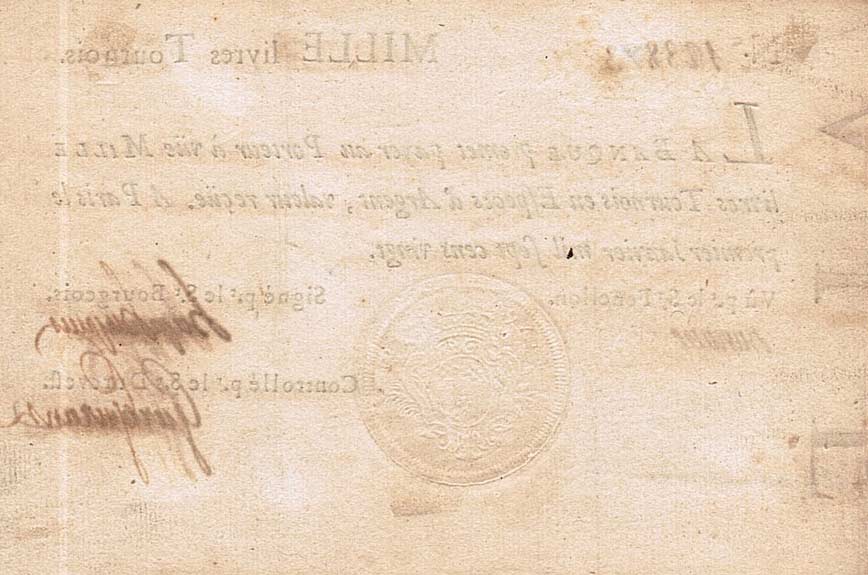 MILLE livres Tournois.
LA BANQUE promet payer au Porteur à vüe MILLE
livres Tournois en Especes d'Argent, valeur reçüe. A Paris le
premier Janvier mil sept cens vingt.
Vû p.r le S.r Fenellon. Signé p.r le S.r Bourgeois.
Controllé p.r le S.r Durevest.